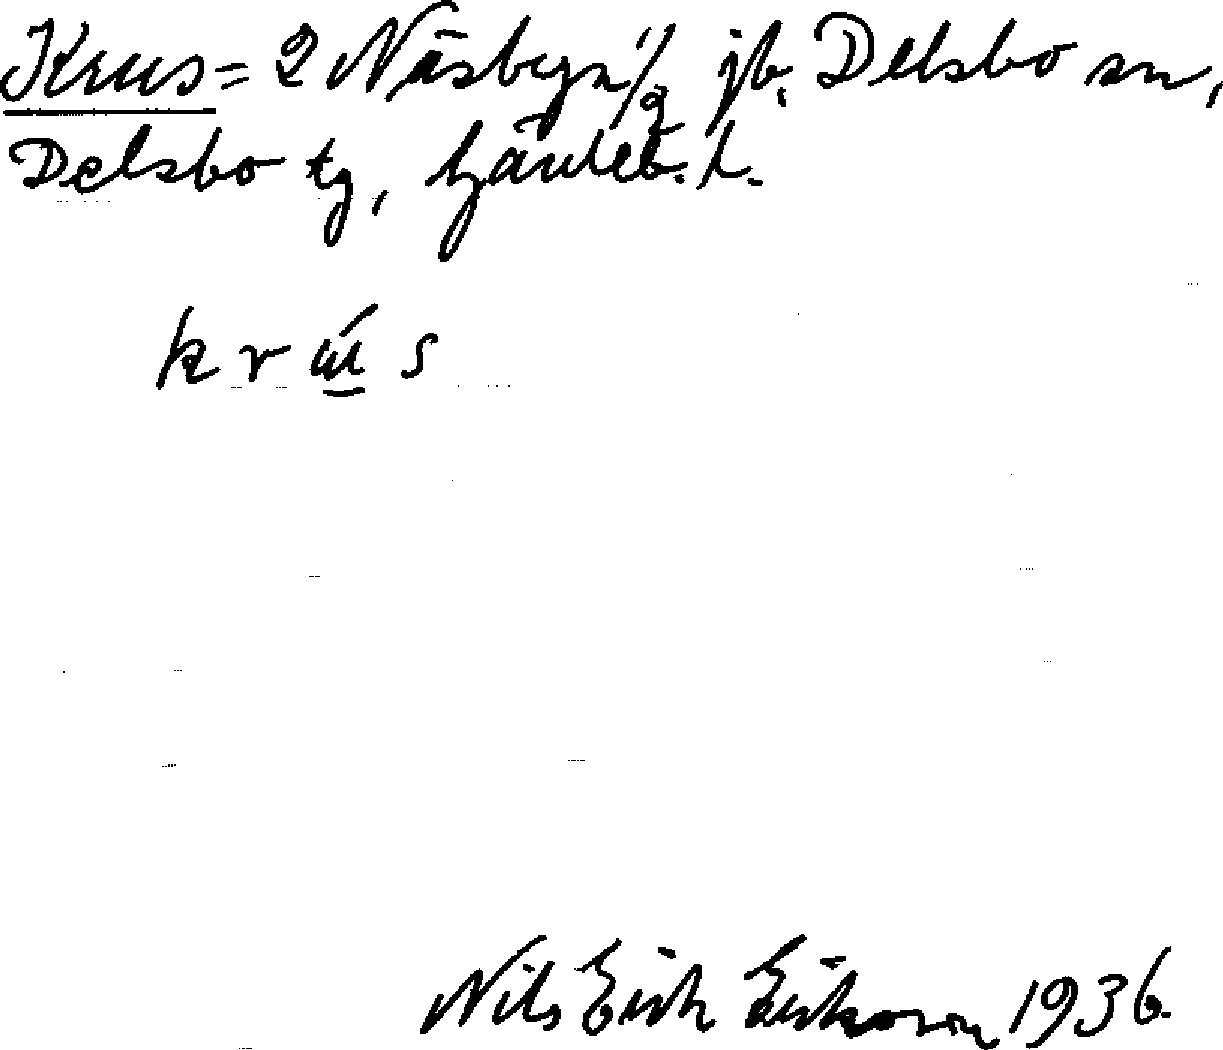 Krus = 2 Näsbyn 1/2 jb. Delsbo sn,
Delsbo tg, Gävleb. l.
k r ú̳ s
Nils Erik Eriksson 1936.